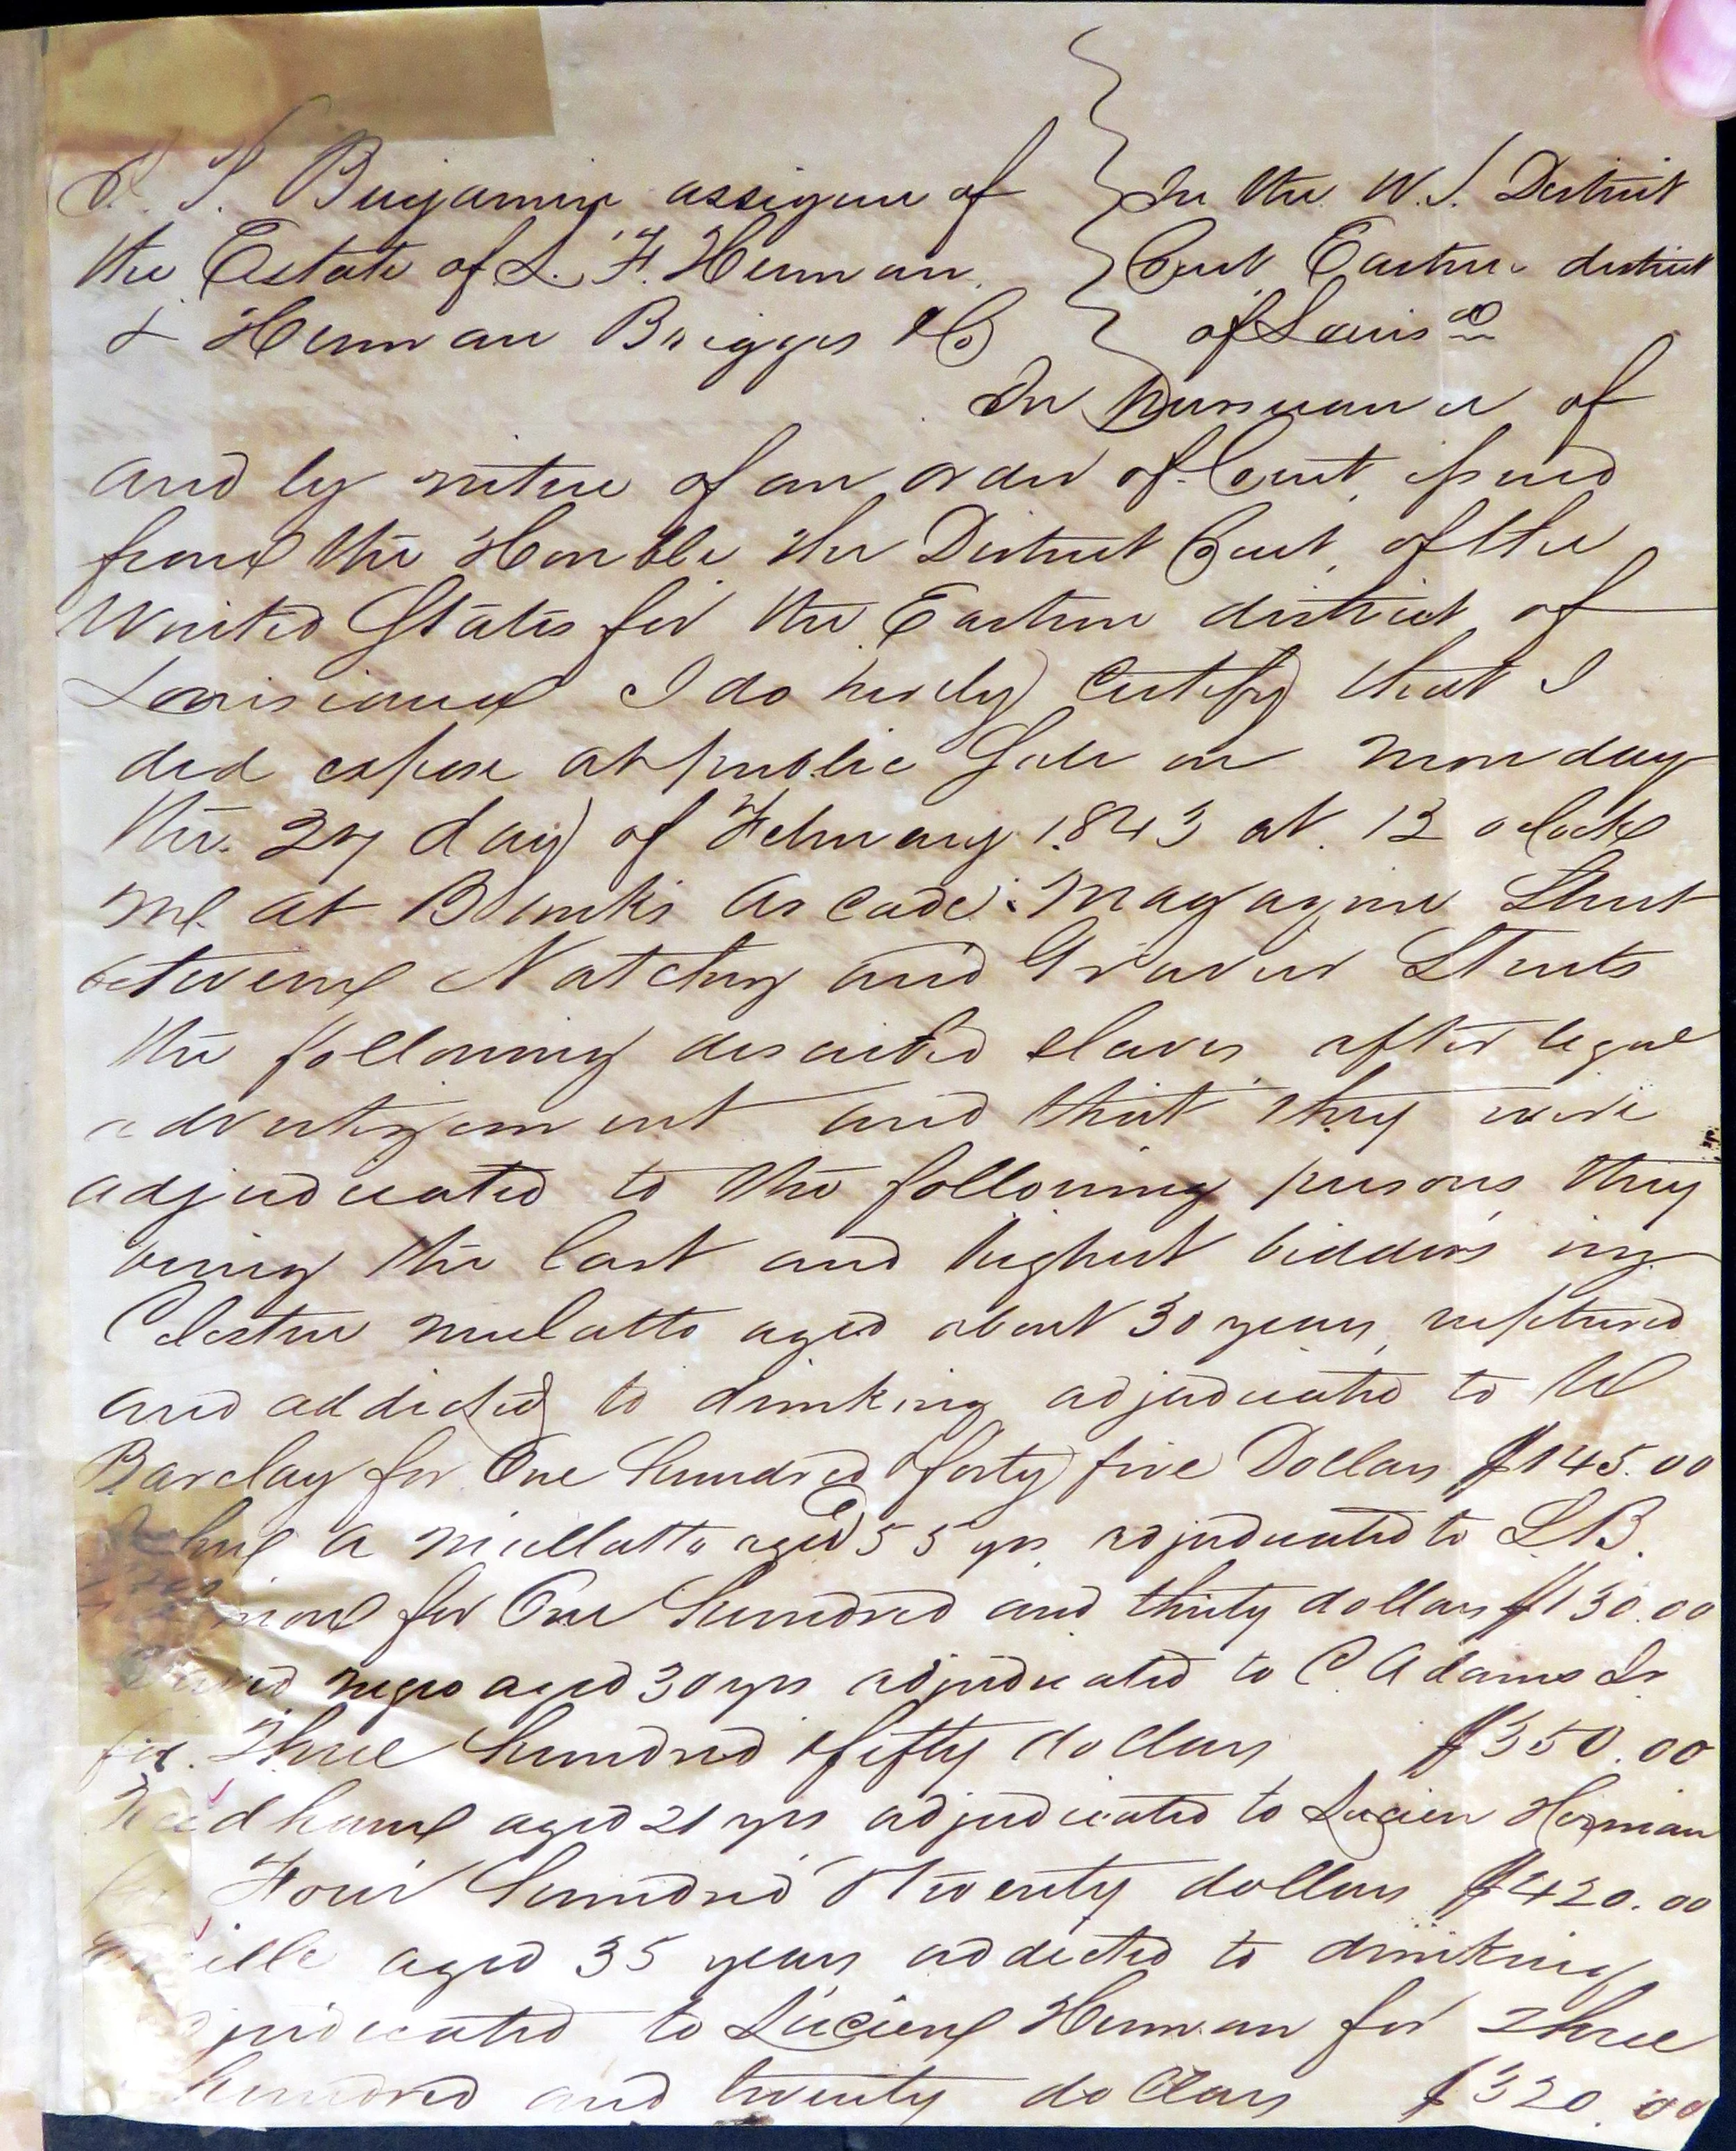 Benjamin assignee of
the Estate of L. F. Herman
& Herman Briggs & Co
In the U.S. District
Court Eastern district
of Louisa
In Pursuance of
and by virtue of an order of Court, issued
from the Honble the District Court, of the
United States for the Eastern district of
Louisiana I do hereby Certify that I
did expose at public Sale on Monday
the 27 day of February 1843 at 12 oclock
M at Banks Arcade Magazine Street
between Natchez and Gravier Streets
the following described slaves after legal
advertizement and that they were
adjudicated to the following persons they
being the last and highest bidders viz
Celestin mulatto aged about 30 years, ruptured
and addicted to drinking adjudicated to
Barclay for One hundred & forty five Dollars $145.00
a mullatto aged 55 yrs adjudicated to L B.
for One hundred and thirty dollars $130.00
negro aged 30 yrs adjudicated to C. Adams Jr
for Three hundred & fifty dollars $350.00
Needham aged 21 yrs adjudicated to Lucien Herman
Four hundred & twenty dollars $420.00
aged 35 years addicted to drinking
adjudicated to Lucien Herman for Three
hundred and twenty dollars $320.00